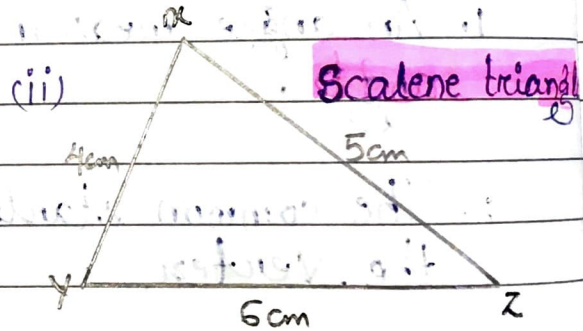 x
(ii)
Scalene triangle
4cm
5cm
Y
Z
6cm